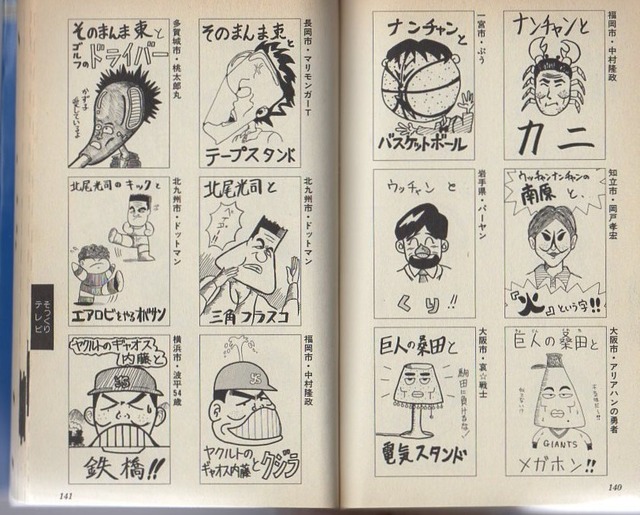 福岡市・中村隆政
ナンチャンと
カニ
一宮市・ぷう
ナンチャンと
バスケットボール
知立市・岡戸孝宏
ウッチャンナンチャンの
南原と、
『火』という字!!
岩手県・バーヤン
ウッチャンと
くり!!
大阪市・アリアハンの勇者
巨人の桑田と
GIANTS
メガホン!!
大阪市・哀☆戦士
巨人の桑田と
電気スタンド
140
長岡市・マリモンガーT
そのまんま東と
テープスタンド
多賀城市・桃太郎丸
そのまんま東と
ゴルフの
ドライバー
かず子
愛しているよ
北九州市・ドットマン
北尾光司と
三角フラスコ
北九州市・ドットマン
北尾光司のキックと
エアロビをやるオバサン
福岡市・中村隆政
ヤクルトの
ギャオス内藤とクジラ
横浜市・波平54歳
ヤクルトのギャオス
内藤と
鉄橋!!
そっくり
テレビ
141